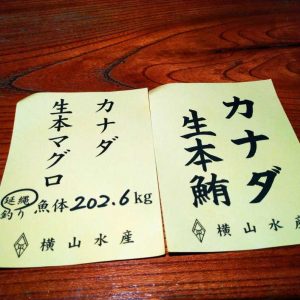 カナダ
生本マグロ
延縄
釣り
魚体 202.6kg
横山水産
カナダ
生本鮪
横山水産